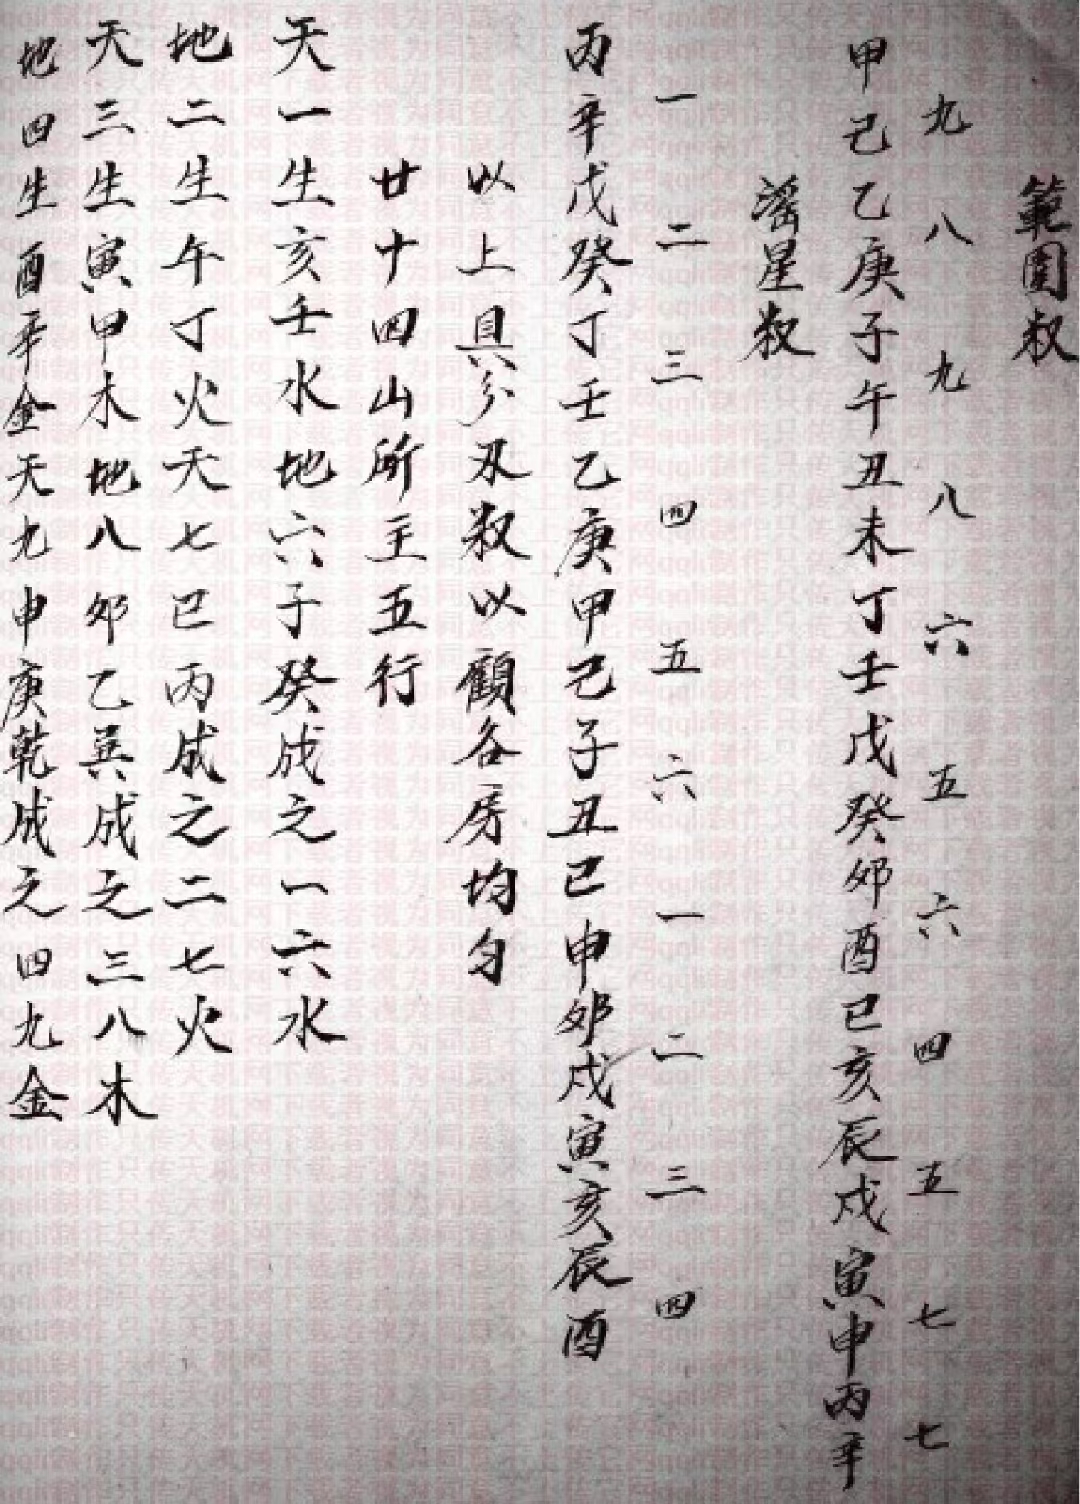 範圍叔
九八九八六五六四五七七
甲己乙庚子午丑未丁壬戊癸卯酉巳亥辰戌寅申丙辛
滛星叔
一二三四五六一二三四
丙辛戊癸丁壬乙庚甲己子丑巳申卯戌寅亥辰酉
以上具分及叔以顧各房均匀
廿十四山所主五行
天一生亥壬水地六子癸成之一六水
地二生午丁火天七巳丙成之二七火
天三生寅甲木地八卯乙巽成之三八木
地四生酉辛金天九申庚乾成之四九金